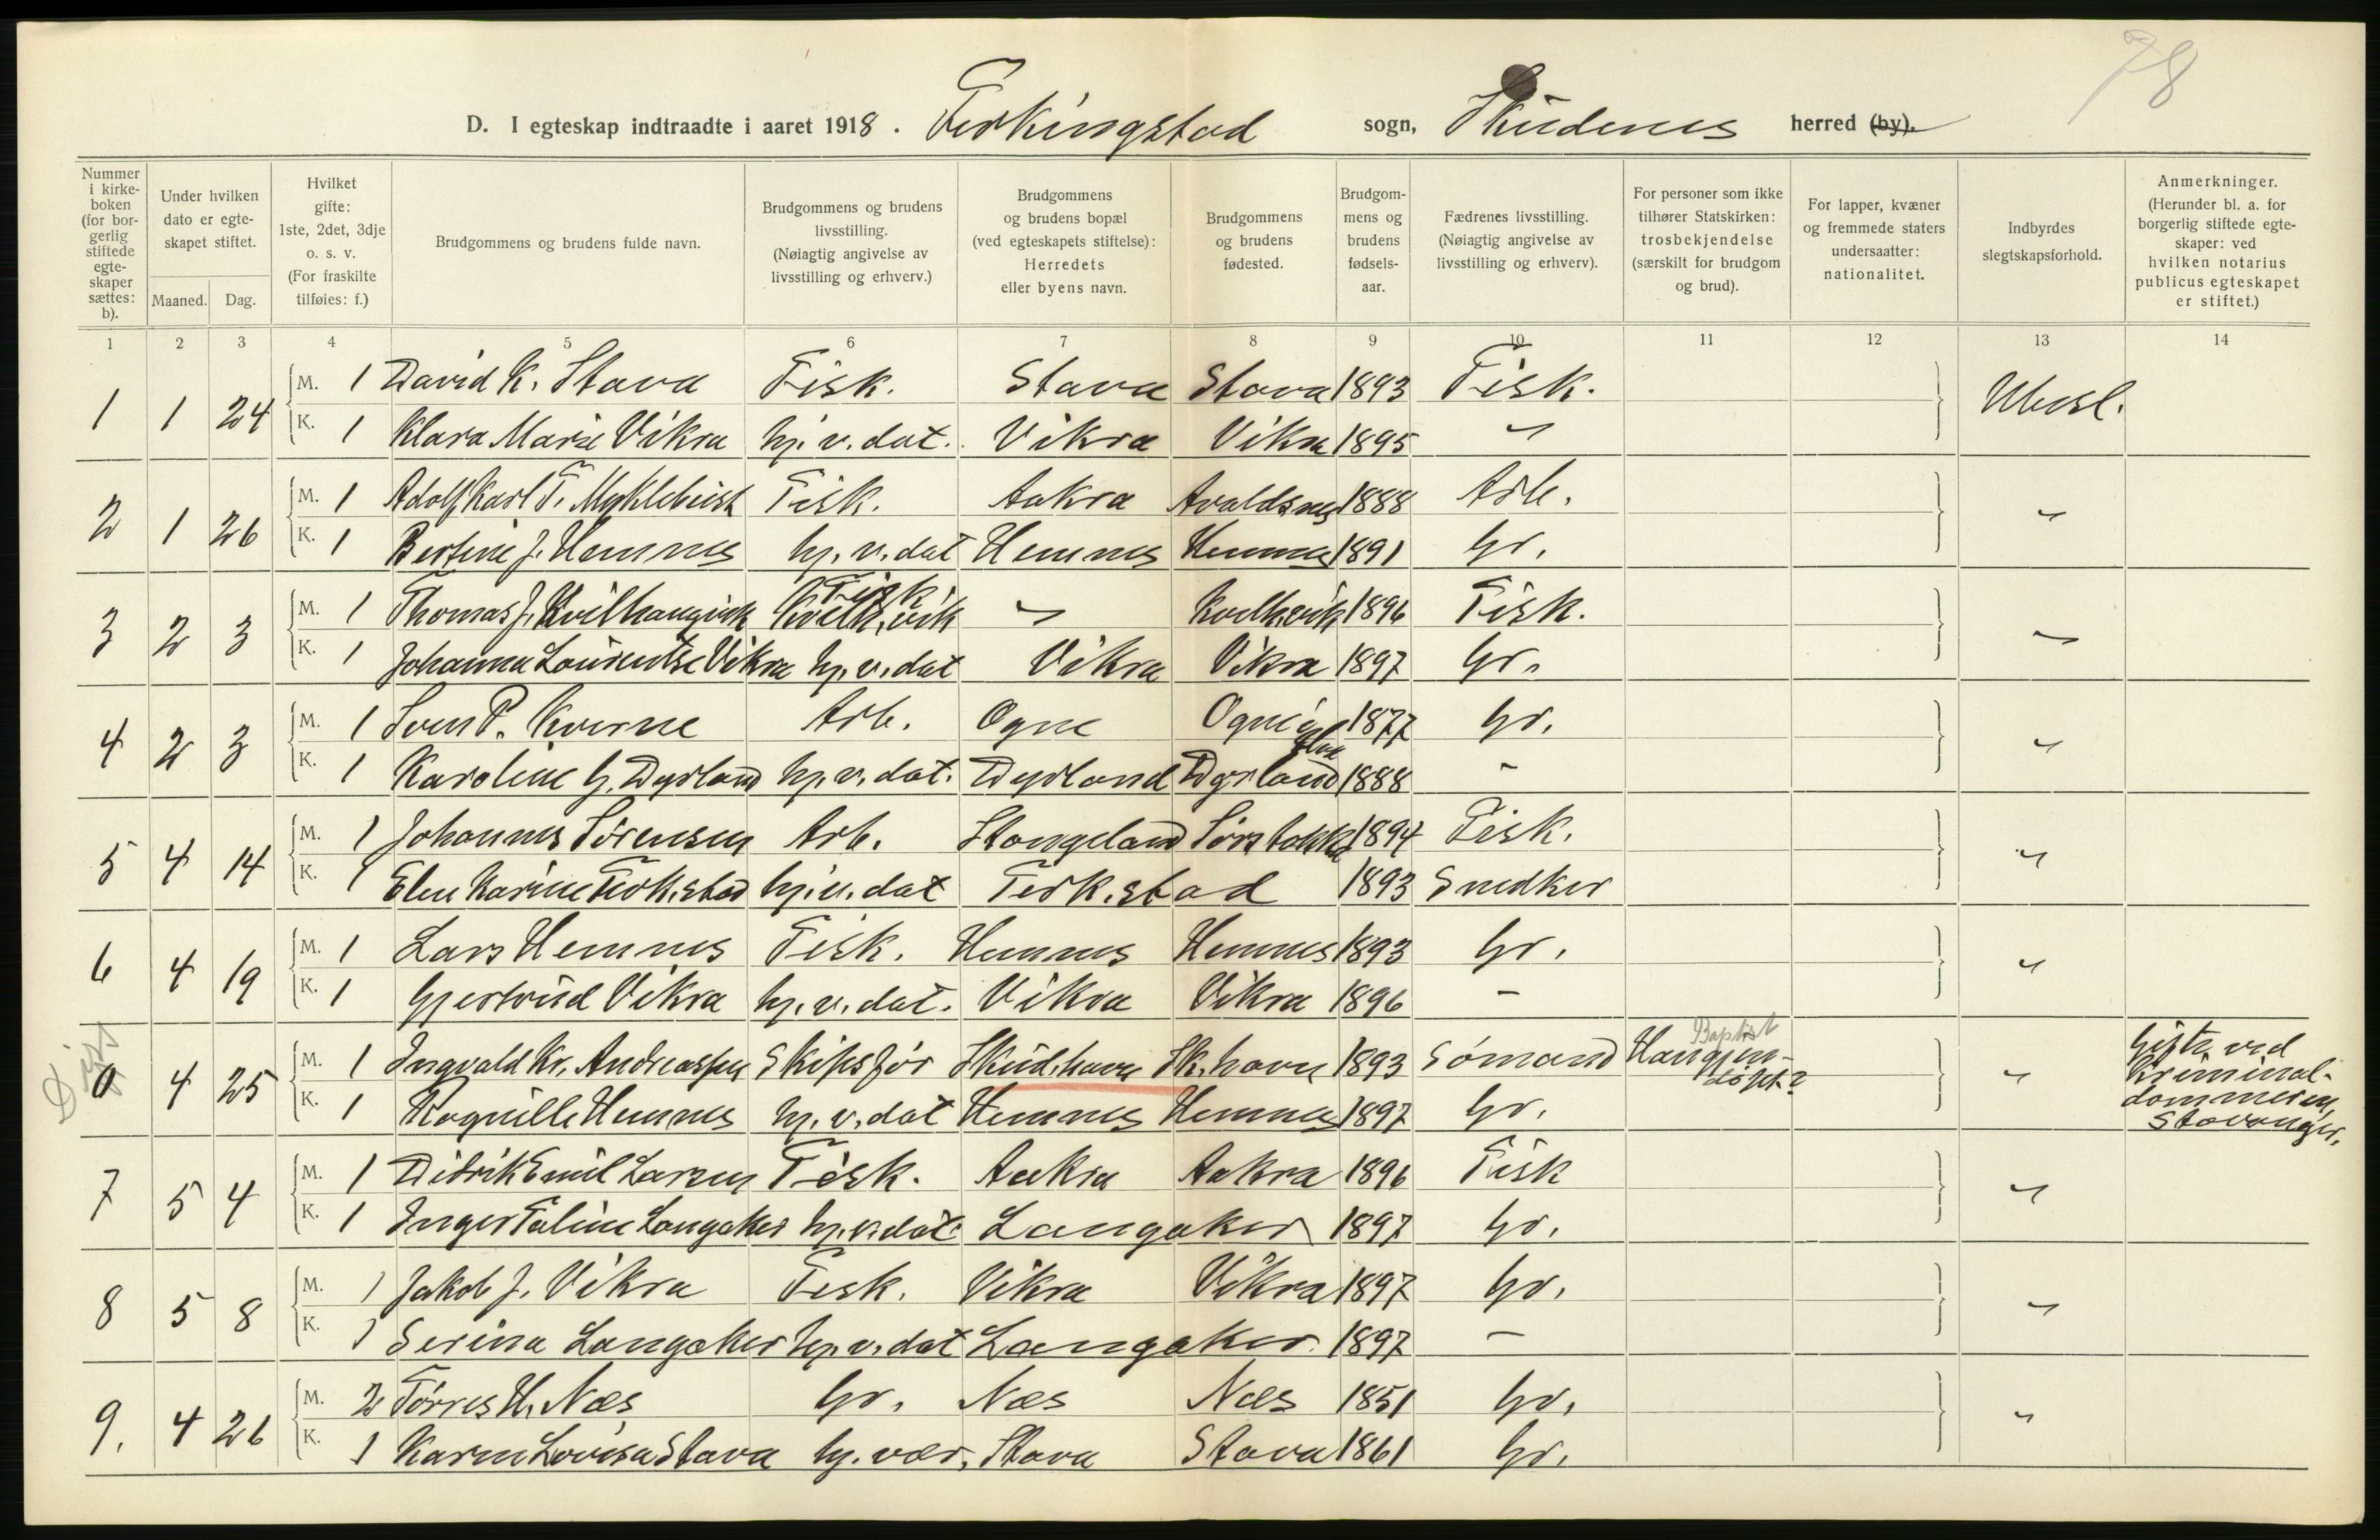 78
D. I egteskap indtraadte i aaret 1918. Ferkingstad sogn, Skudenes herred (by).
Nummer i kirkeboken (for borgerlig stiftede egteskaper sættes: b).
Under hvilken dato er egteskapet stiftet.
Maaned. Dag.
Hvilket gifte: 1ste, 2det, 3dje o. s. v. (For fraskilte tilføies: f.)
Brudgommens og brudens fulde navn.
Brudgommens og brudens livsstilling. (Nøiagtig angivelse av livsstilling og erhverv.)
Brudgommens og brudens bopæl (ved egteskapets stiftelse): Herredets eller byens navn.
Brudgommens og brudens fødested.
Brudgommens og brudens fødselsaar.
Fædrenes livsstilling. (Nøiagtig angivelse av livsstilling og erhverv).
For personer som ikke tilhører Statskirken: trosbekjendelse (særskilt for brudgom og brud).
For lapper, kvæner og fremmede staters undersaatter: nationalitet.
Indbyrdes slegtskapsforhold.
Anmerkninger. (Herunder bl. a. for borgerlig stiftede egteskaper: ved hvilken notarius publicus egteskapet er stiftet.)
1 2 3 4 5 6 7 8 9 10 11 12 13 14
1 1 24 M. 1 David K. Stava Fisk. Stava Stava 1893 Fisk. Ubesl.
K. 1 Klara Marie Vikra hj. v. dat. Vikra Vikra 1895 "
2 1 26 M. 1 Adolf Karl F. Myklebust Fisk. Aakra Avaldsnes 1888 Arb. "
K. 1 Bertine J. Hemnes hj. v. dat Hemnes Hemnes 1891 Gr.
3 2 3 M. 1 Thomas J. Kvilhaugvik Fisk Kvilh.vik " Kvilh.vik 1896 Fisk. "
K. 1 Johanna Lourentse Vikra hj. v. dat Vikra Vikra 1897 Gr.
4 2 3 M. 1 Sven P. Kverne Arb. Ogne Ogne 1877 Gr. "
K. 1 Karoline G. Dyrland hj. v. dat. Dyrland Dyrland 1888 "
5 4 14 M. 1 Johannes Sørensen Arb. Stangeland Sørstokke 1894 Fisk. "
K. 1 Elen Karine Ferk.stad hj. v. dat Ferk.stad 1893 Snedker
6 4 19 M. 1 Lars Hemnes Fisk. Hemnes Hemnes 1893 Gr. "
K. 1 Gjertrud Vikra hj. v. dat. Vikra Vikra 1896 "
Diss
0 4 25 M. 1 Ingvald Kr. Andreassen Skipsfør Skud.havn Sk.havn 1893 Sømand Han gjendøpt? Baptist " Gifte ved Kriminaldommeren, Stavanger.
K. 1 Ragnille Hemnes hj. v. dat Hemnes Hemnes 1897 Gr.
7 5 4 M. 1 Didrik Emil Larsen Fisk. Aakra Aakra 1896 Fisk "
K. 1 Inger Taline Langaker hj. v. dat. Langaker 1897 Gr.
8 5 8 M. 1 Jakob J. Vikra Fisk. Vikra Vikra 1897 Gr. "
K. 1 Serina Langaker hj. v. dat Langaker 1897 "
9. 4 26 M. 2 Tørres H. Næs Gr. Næs Næs 1851 Gr. "
K. 1 Karen Lovisa Stava hj. vær. Stava Stava 1861 Gr.